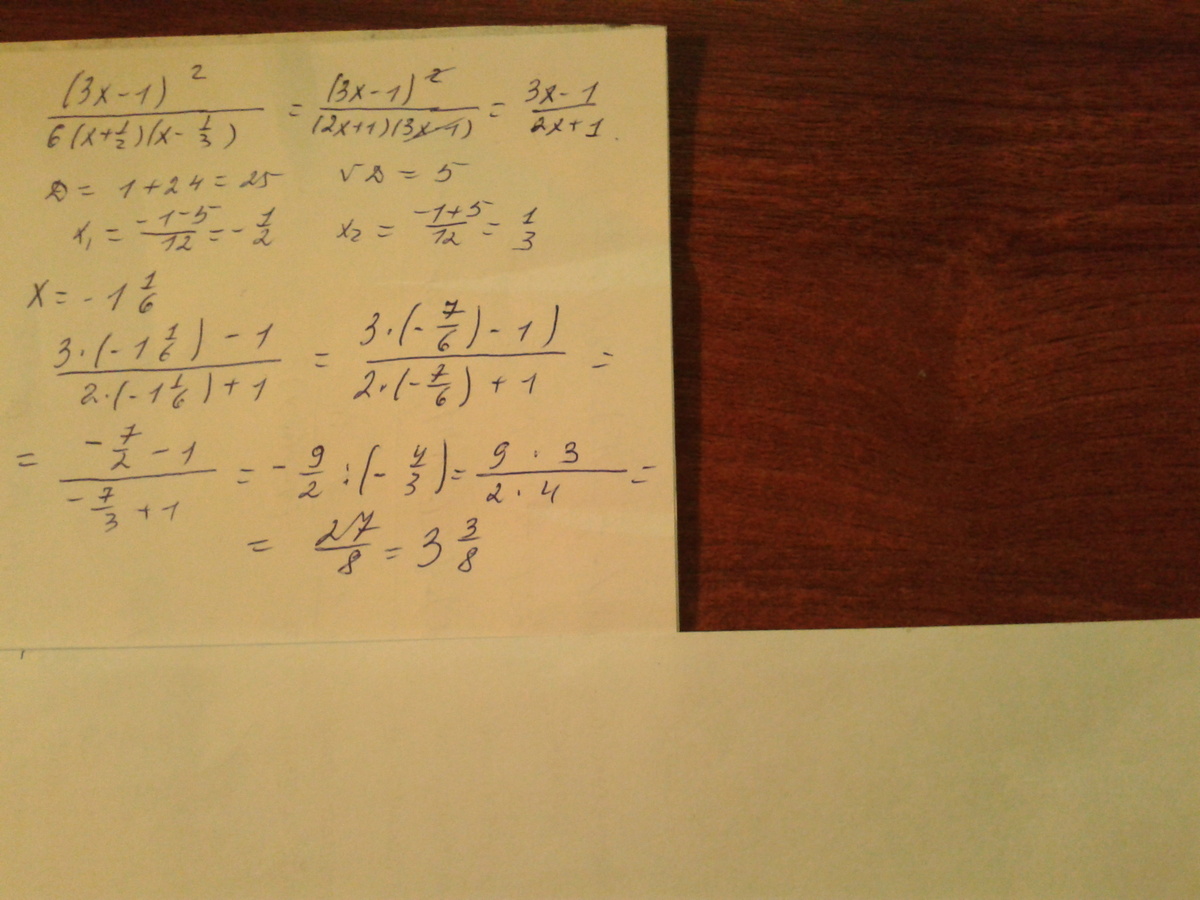 (3x-1)² / 6(x+1/2)(x-1/3) = (3x-1)² / (2x+1)(3x-1) = 3x-1 / 2x+1.
D = 1+24 = 25 √D = 5
x₁ = -1-5 / 12 = -1/2 x₂ = -1+5 / 12 = 1/3
X = -1 1/6
3·(-1 1/6) - 1 / 2·(-1 1/6) + 1 = 3·(-7/6) - 1) / 2·(-7/6) + 1 =
= -7/2 - 1 / -7/3 + 1 = -9/2 : (-4/3) = 9·3 / 2·4 =
= 27/8 = 3 3/8